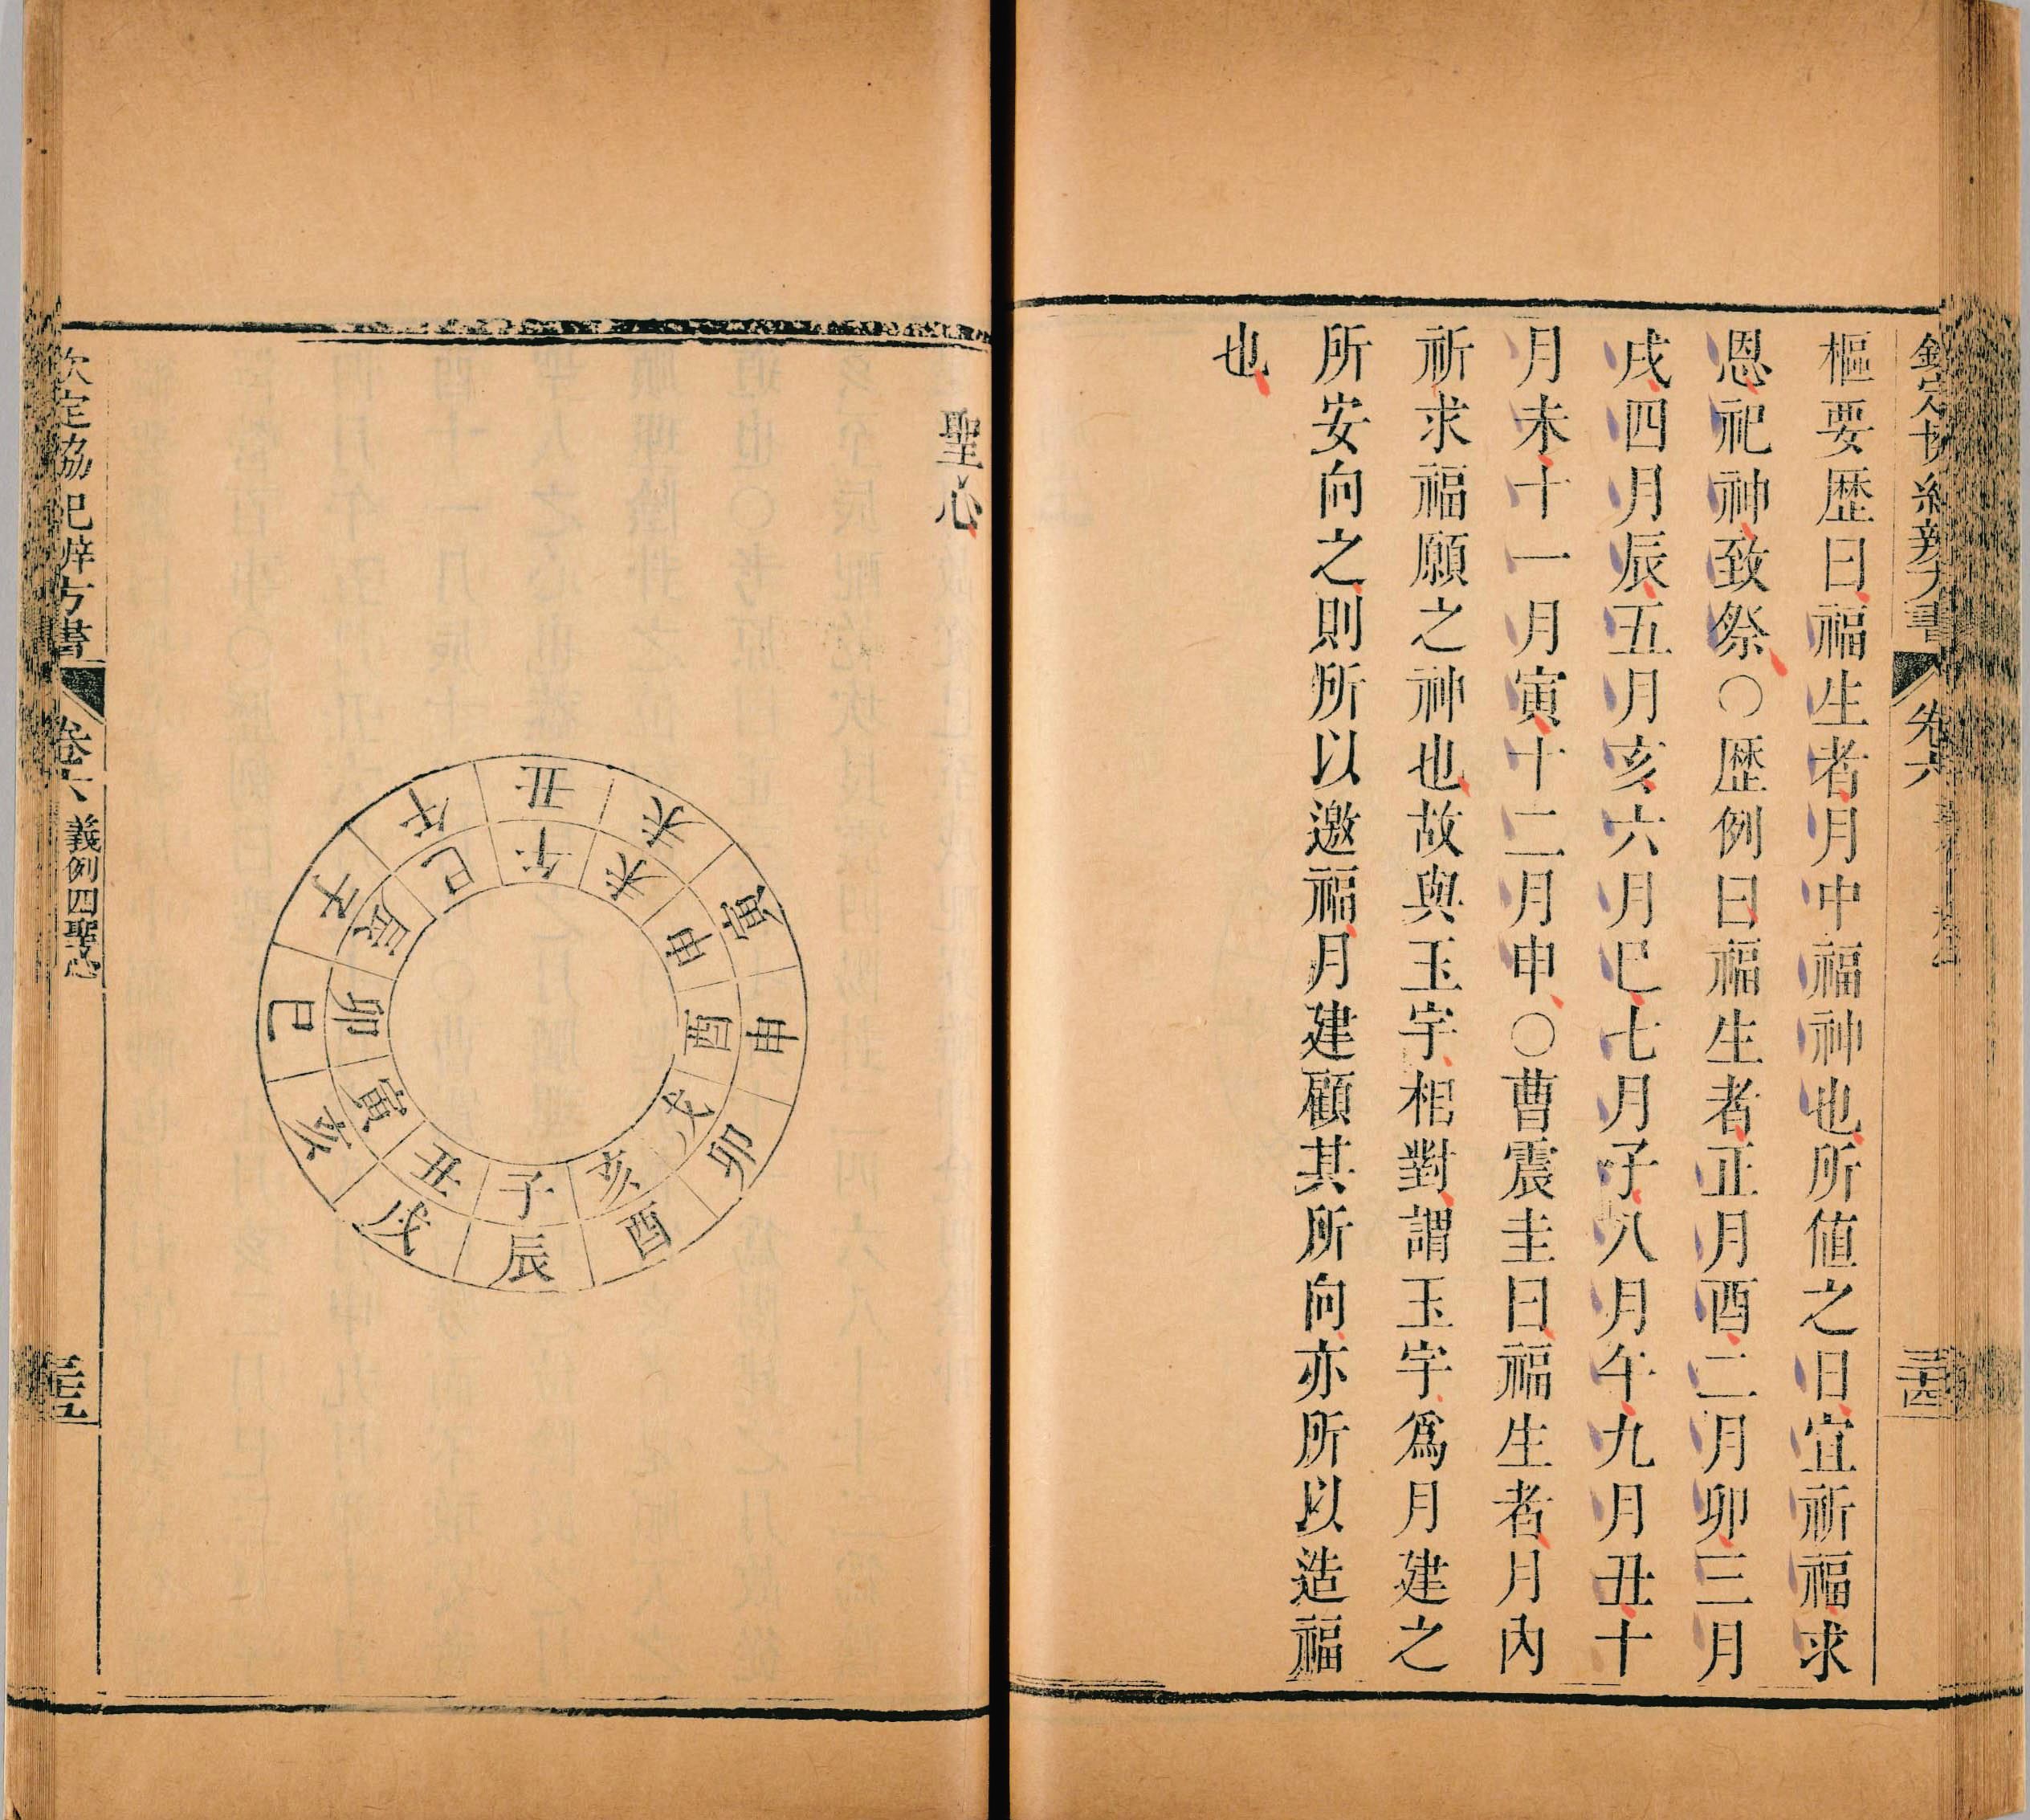 欽定協紀辨方書
卷六
三十四
樞要歷曰福生者月中福神也所值之日宜祈福求
恩祀神致祭○歷例曰福生者正月酉二月卯三月
戌四月辰五月亥六月巳七月子八月午九月丑十
月未十一月寅十二月申○曹震圭曰福生者月內
祈求福願之神也故與玉宇相對謂玉宇爲月建之
所安向之則所以邀福月建顧其所向亦所以造福
也
聖心
丑未寅申卯酉辰戌亥巳子午
午未申酉戌亥子丑寅卯辰巳
欽定協紀辨方書
卷六
義例四聖心
三十五